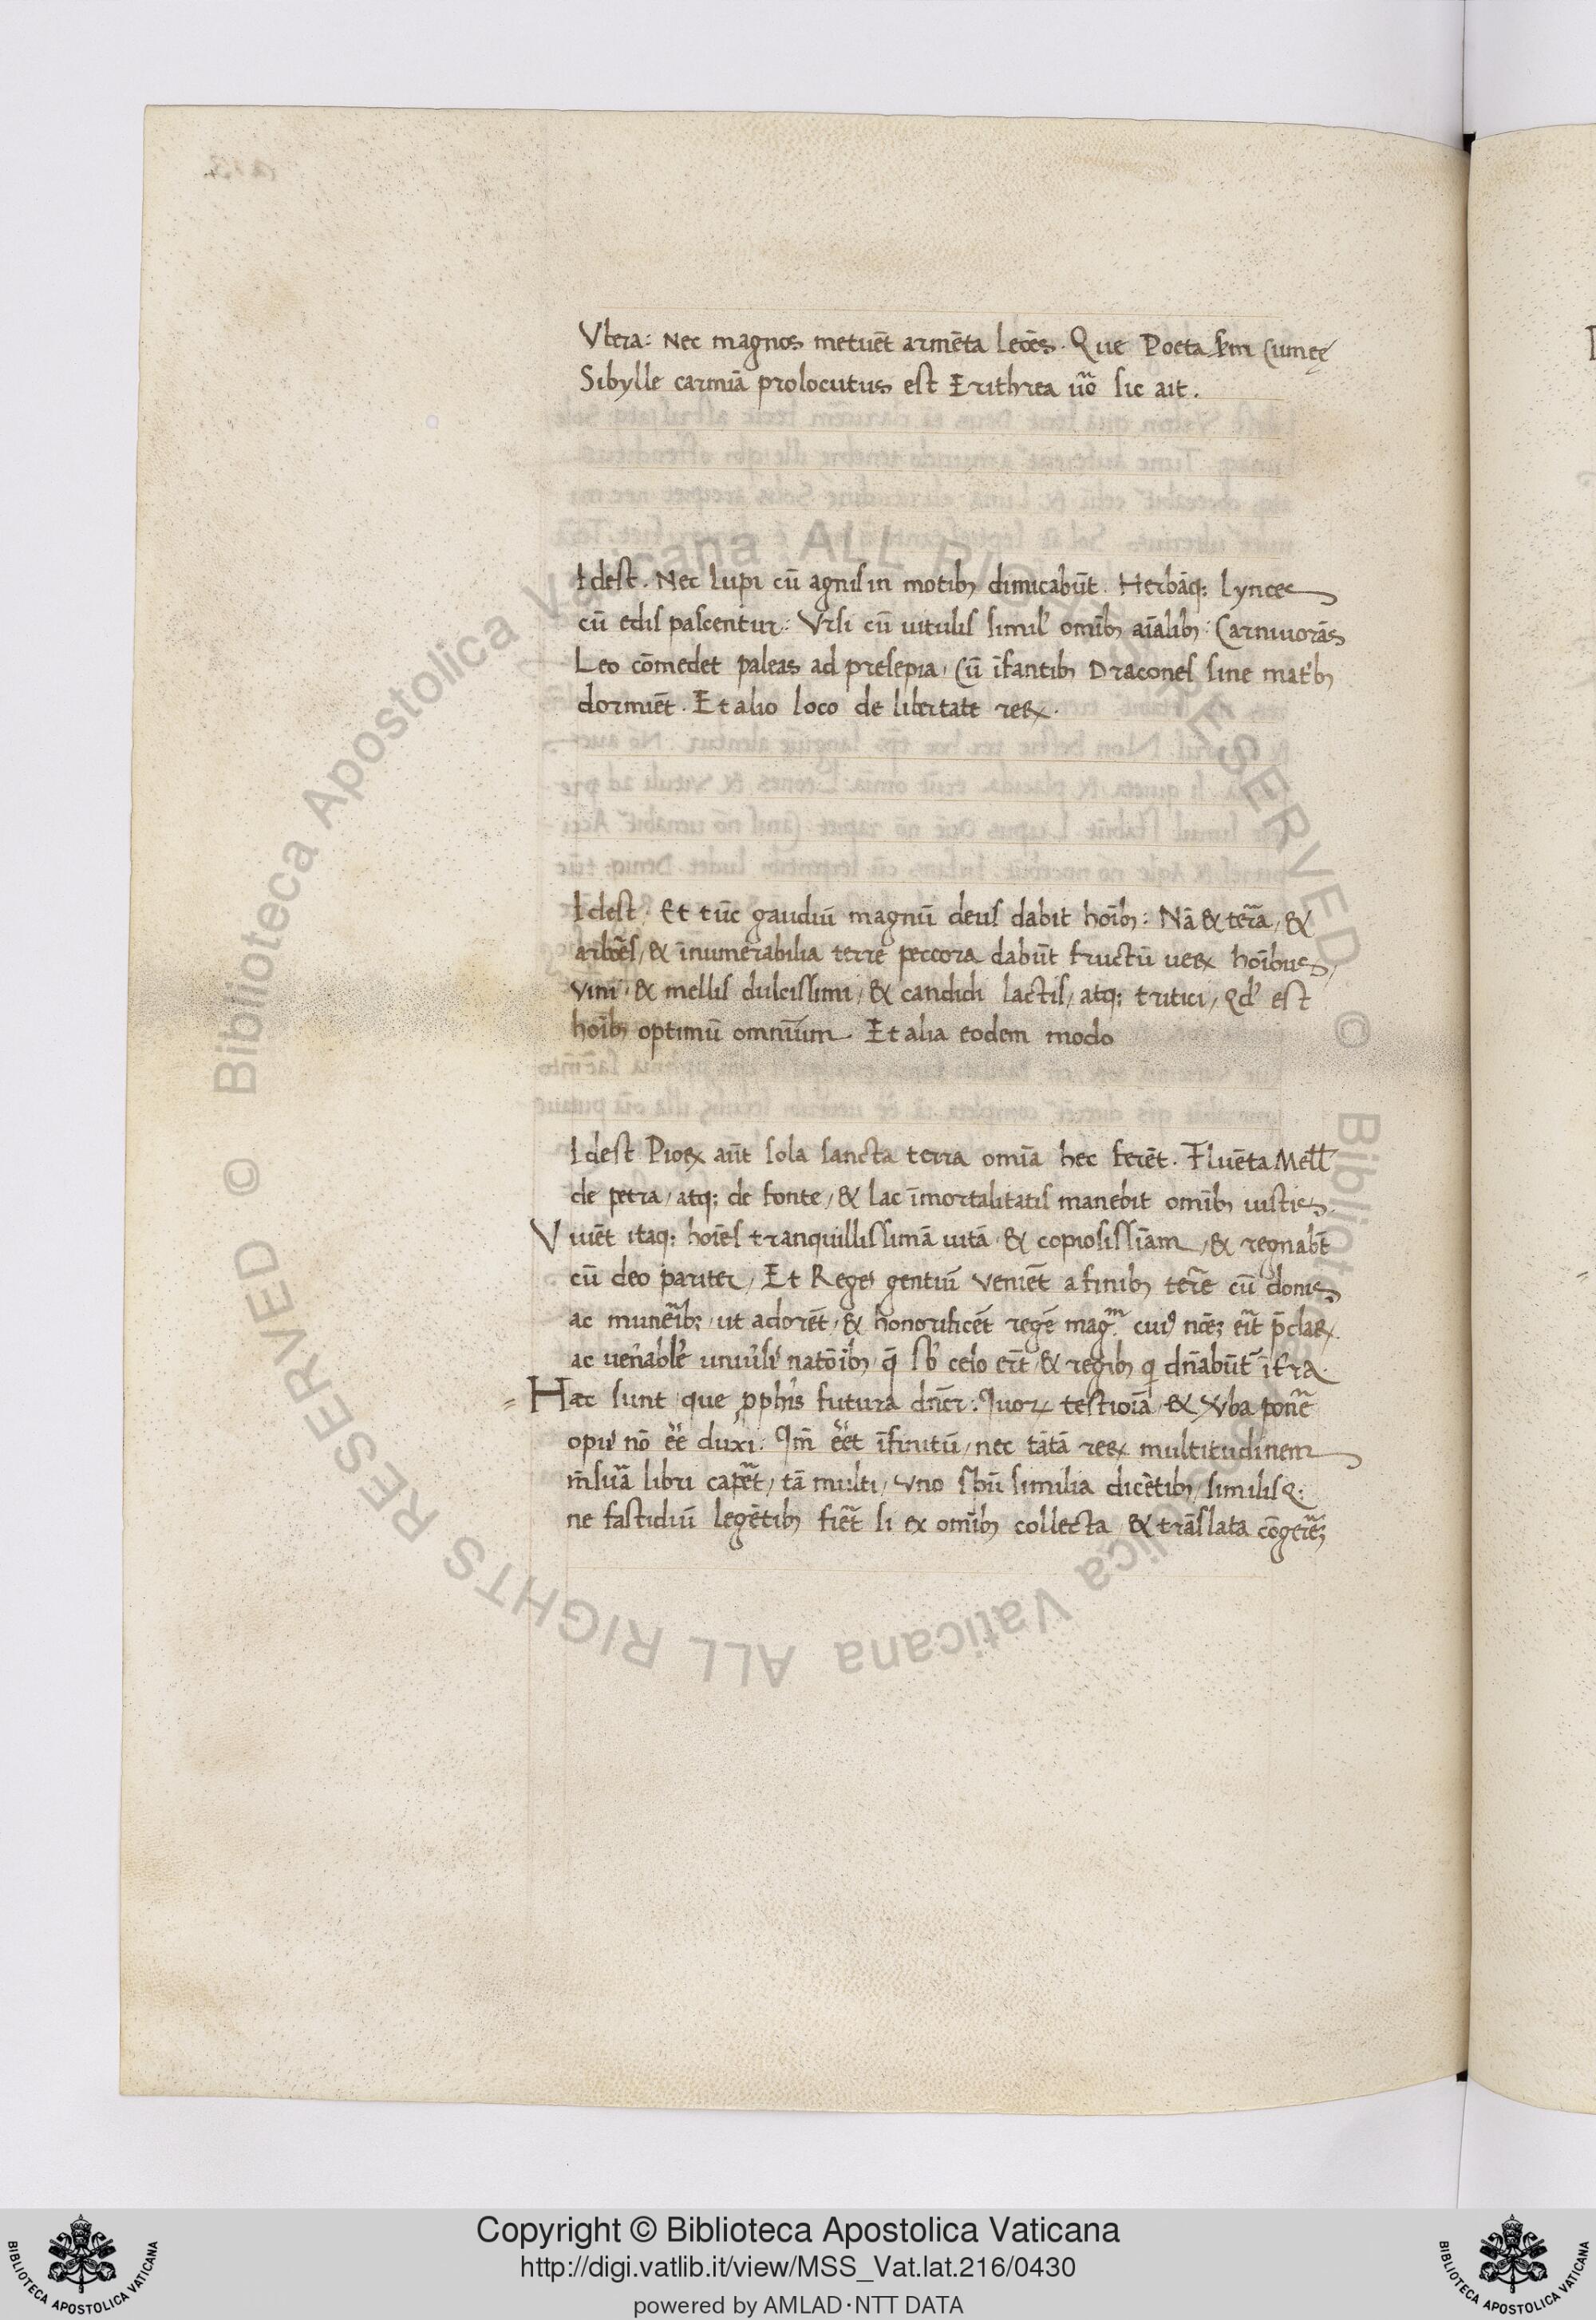 Vbera: Nec magnos metuēt armēta leōes. Que Poeta scđm Cumeę
Sibylle carmiā prolocutus est Erithrea ūo sic ait.
Idest. Nec lupi cū agnis in mōtibꝫ dimicabūt. Herbāqꝫ Lynces
cū edis pascentur: Vrsi cū uitulis simul omībꝫ aīalibꝫ. Carniuorās
Leo cōmedet paleas ad presepia, Cū īfantibꝫ Dracones sine matribꝫ
dormiēt. Et alio loco de libertate reꝝ.
Idest. Et tūc gaudiū magnū deus dabit hoībꝫ: Nā & terra, &
arboēs, & īnumerabilia terre peccora dabūt fructū ueꝝ hoībus,
vini, & mellis dulcissimi, & candidi lactis, atqꝫ tritici, qđ est
hoībꝫ optimū omnīum. Et alia eodem modo
Idest Pioꝝ aūt sola sancta terra omīa hec ferēt. Fluēta Mell
de petra, atqꝫ de fonte, & lac īmortalitatis manebit omībꝫ iustis.
Viuēt itaqꝫ hoīes tranquillissimā uitā & copiosissīam, & regnabt̄
cū deo pariter, Et Reges gentiū venīēt a finibꝫ terre cū donis
ac munēibꝫ, ut adorēt, & honorificēt regē mag.m cuiꝰ nōeꝫ eīt p̄claꝝ
ac uen̄able uniūsi natōibꝫ q̄ sb celo erūt & regibꝫ qi dn̄abūt ī trā.
Haec sunt que ꝓphis futura dn̄cr: Quoꝝ testioīa & Vba ponē
opus nō ēe duxi: Qm̄ ēet īfinitū, nec tātā reꝝ multitudinem
m̄suā libri capēt, tā multi, vno spū similia dicētibꝫ, similisqꝫ
ne fastidiū legētibꝫ fiēt si ex omībꝫ collecta & trāslata cōgerēꝫ
Copyright © Biblioteca Apostolica Vaticana
http://digi.vatlib.it/view/MSS_Vat.lat.216/0430
powered by AMLAD·NTT DATA
BIBLIOTECA APOSTOLICA VATICANA
BIBLIOTECA APOSTOLICA VATICANA
© Biblioteca Apostolica Vaticana ALL RIGHTS RESERVED
© Biblioteca Apostolica Vaticana ALL RIGHTS RESERVED